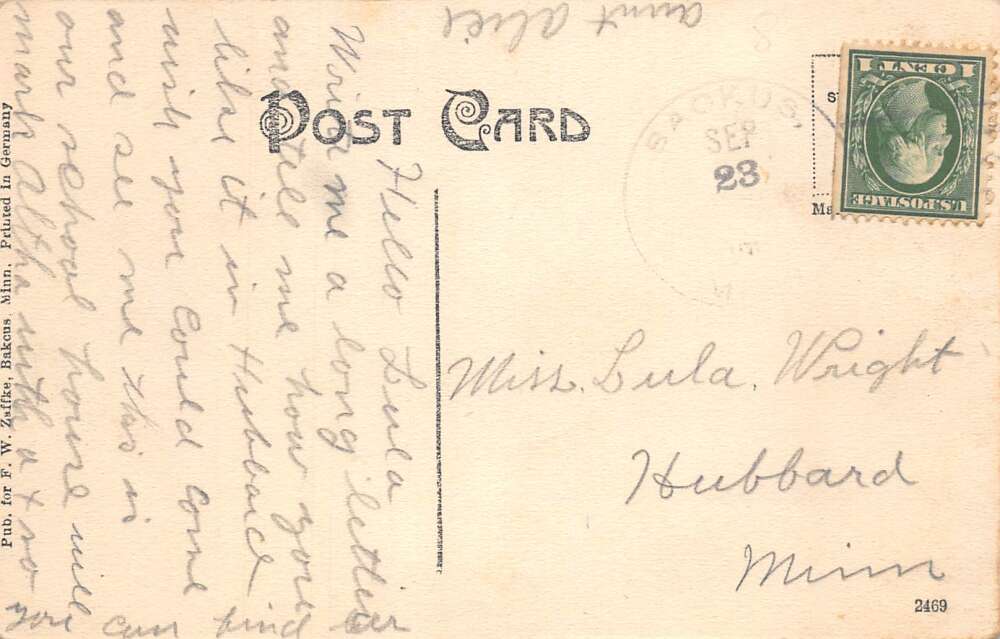 POST CARD
Hello Lula
Write me a long letter
and tell me how you
like it in Hubbard
wish you could come
and see me this is
our school house will
mark Altha with a x so
you can find her
aunt alice
BACKUS,
SEP
23
1 CENT 1
U.S. POSTAGE
Miss. Lula. Wright
Hubbard
Minn
2469
Pub. for F. W. Zaffke, Bakcus, Minn. Printed in Germany